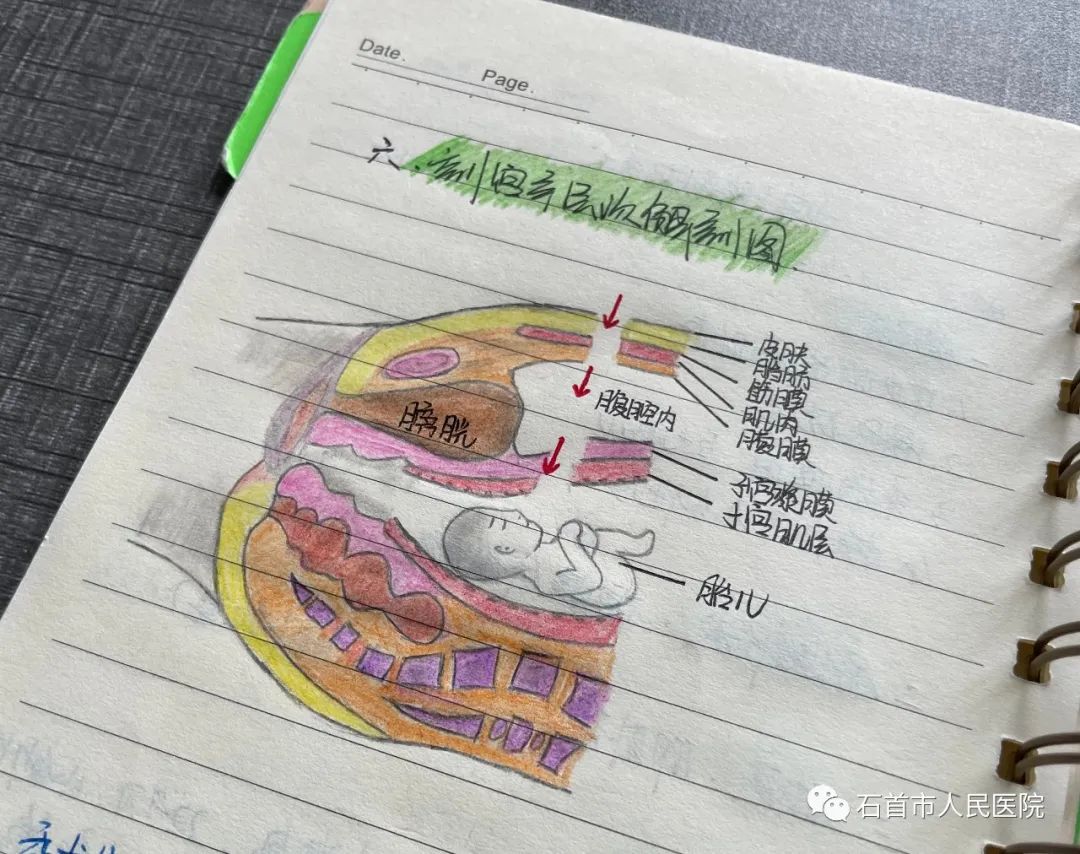 Date.
Page.
六、剖宫产层次解剖图
皮肤
脂肪
筋膜
肌肉
腹膜
腹腔内
膀胱
子宫浆膜
子宫肌层
胎儿
石首市人民医院